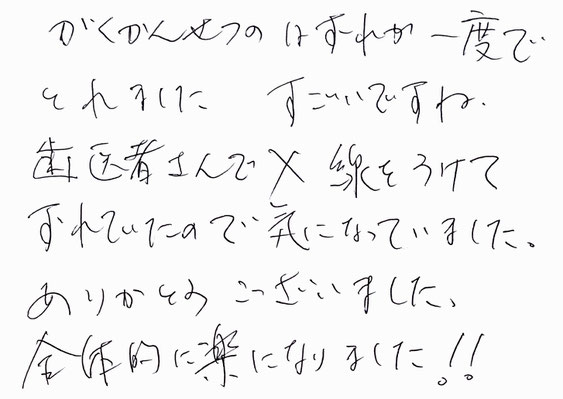 がくかんせつの はずれが 一度で
とれました すごいですね。
歯医者さんでX線をうけて
ずれていたので気になっていました。
ありがとう ございました、
全体的に楽になりました!!